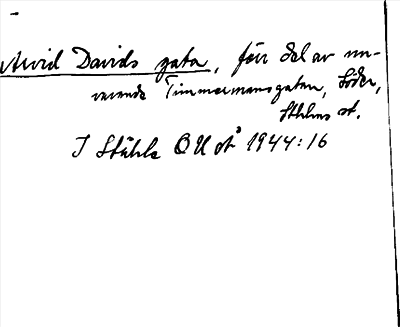 Arvid Davids gata, förr del av nu-
varande Timmermansgatan, Söder,
Sthlms st.
I Ståhle O U st 1944:16